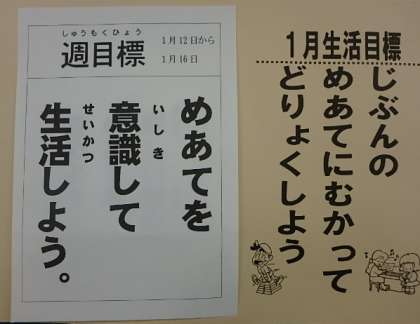 しゅうもくひょう
週目標
1月12日から
1月16日
めあてを
いしき
意識して
せいかつ
生活しよう。
1月生活目標
じぶんの
めあてにむかって
どりょくしよう